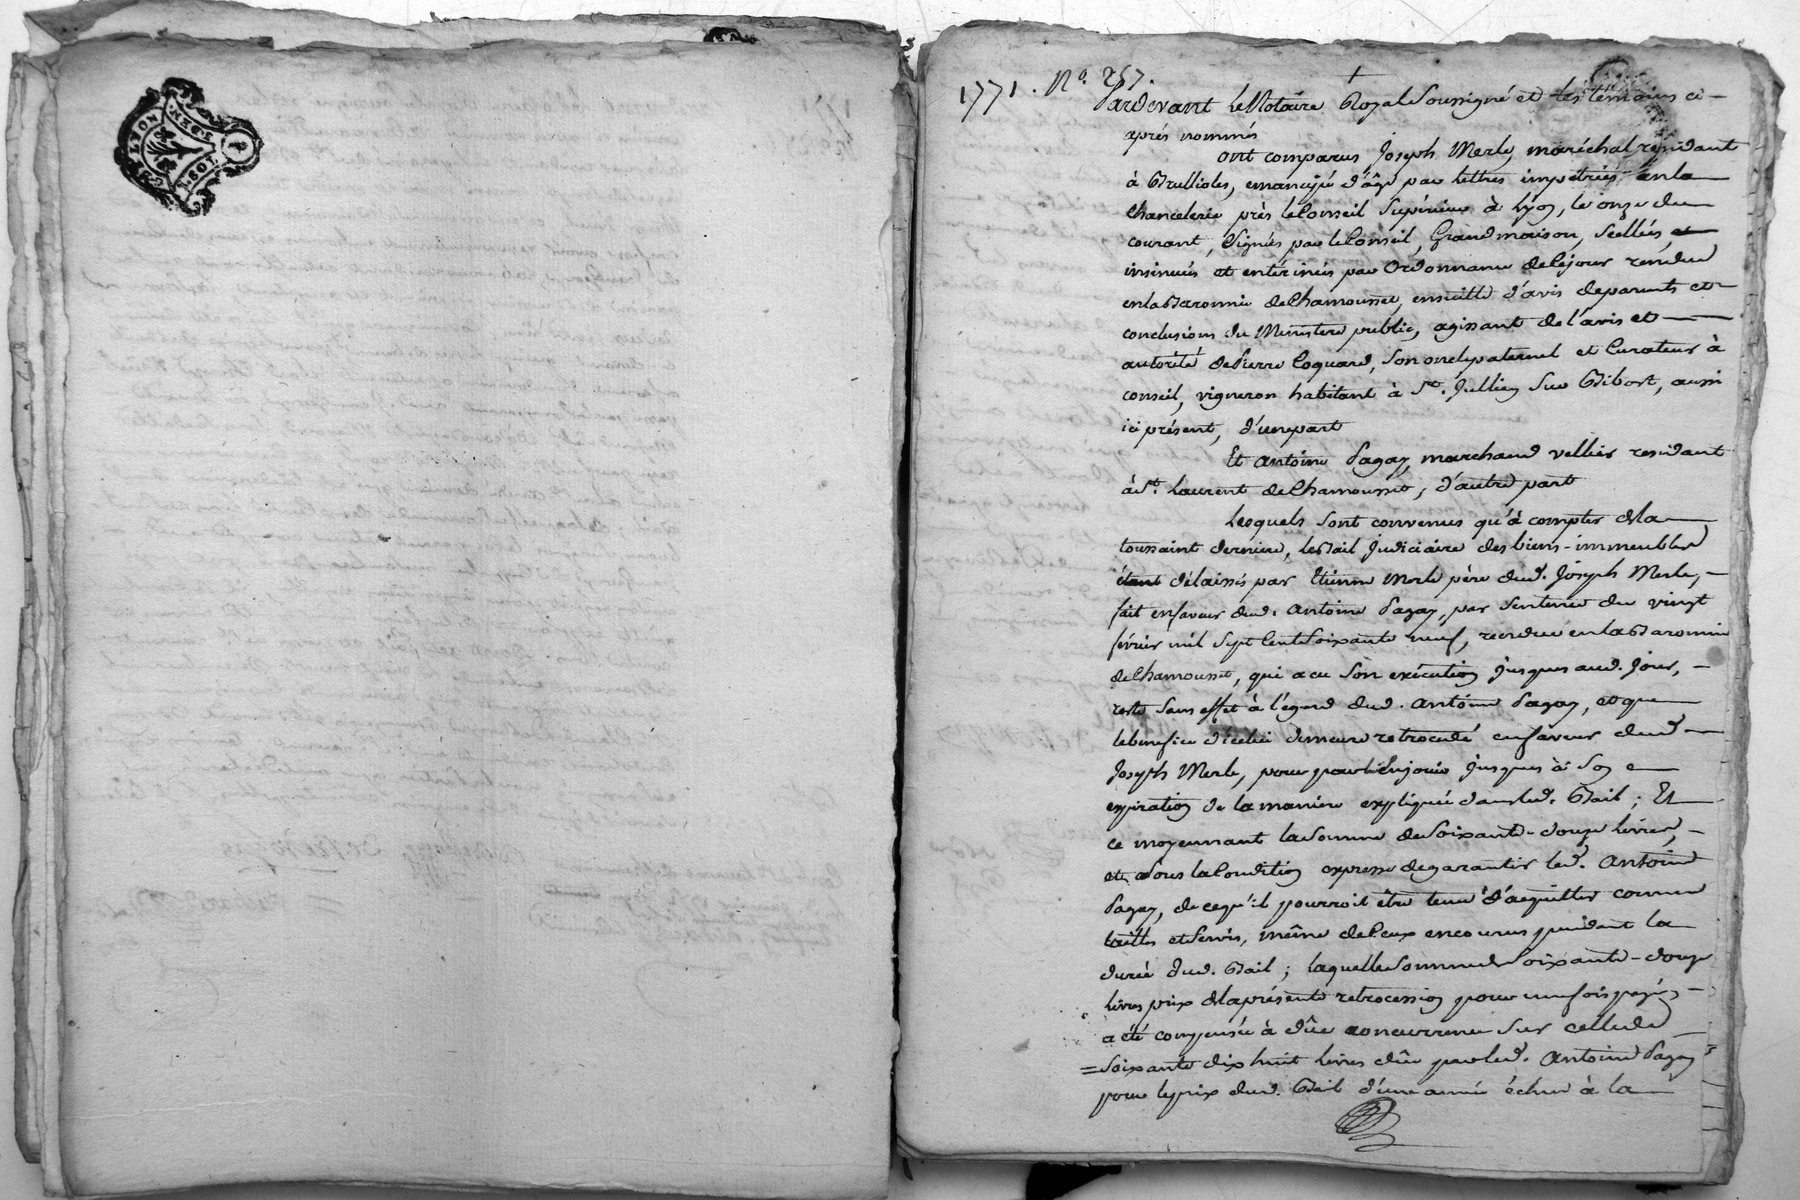 GEN. LYON
1 SOL
1771. N.º 257.
Pardevant le Notaire Royal Soussigné et les témoins ci-
après nommés
ont comparus Joseph Merle, maréchal, residant
à Brullioles, emancipé d'âge par lettres impétrées en la
Chancelerie près le Conseil Supérieur à Lyon, le onze du
courant, Signées par le Conseil, Grandmaison, Scellées, et
insinuées et entérinées par Ordonnance de Cejour rendue
en la Baronnie de Chamousset, ensuitte d'avis de parents et
conclusions du Ministere public, agissant de l'avis et
autorité de Pierre Coquard, Son oncle paternel et Curateur à
conseil, vigneron habitant à S.t Jullien Sur Bibost, aussi
ici présent, d'une part
Et Antoine Pagay, marchand vellier residant
à S.t Laurent de Chamousset, d'autre part
Lesquels Sont convenus qu'à compter de la
toussaint derniere, le Bail Judiciaire des biens-immeubles
étant délaissés par Etienne Merle père dud. Joseph Merle,
fait en faveur dud. Antoine Pagay, par Sentence du vingt
février mil Sept Cent Soixante neuf, rendue en la Baronnie
de Chamousset, qui a eu Son exécution jusques aud. jour,
reste Sans effet à l'égard dud. Antoine Pagay, et que
le benefice d'icelui demeure retrocedé en faveur dud.
Joseph Merle, pour par lui en jouir jusques à Son
expiration de la maniere expliquée dans led. Bail; Et
ce moyennant la Somme de Soixante-douze livres,
et Sous la Condition expresse de garantir led. Antoine
Pagay, de ce qu'il pourroit être tenu d'acquitter comme
tailles et Servis, même de Ceux encourus pendant la
durée dud. Bail; laquelle Somme de Soixante-douze
livres prix de la présente retrocession pour une fois payée,
a été compensée à dûe concurrence Sur celle de
= Soixante dix huit livres dûe par led. Antoine Pagay
pour le prix dud. Bail d'une année échue à la